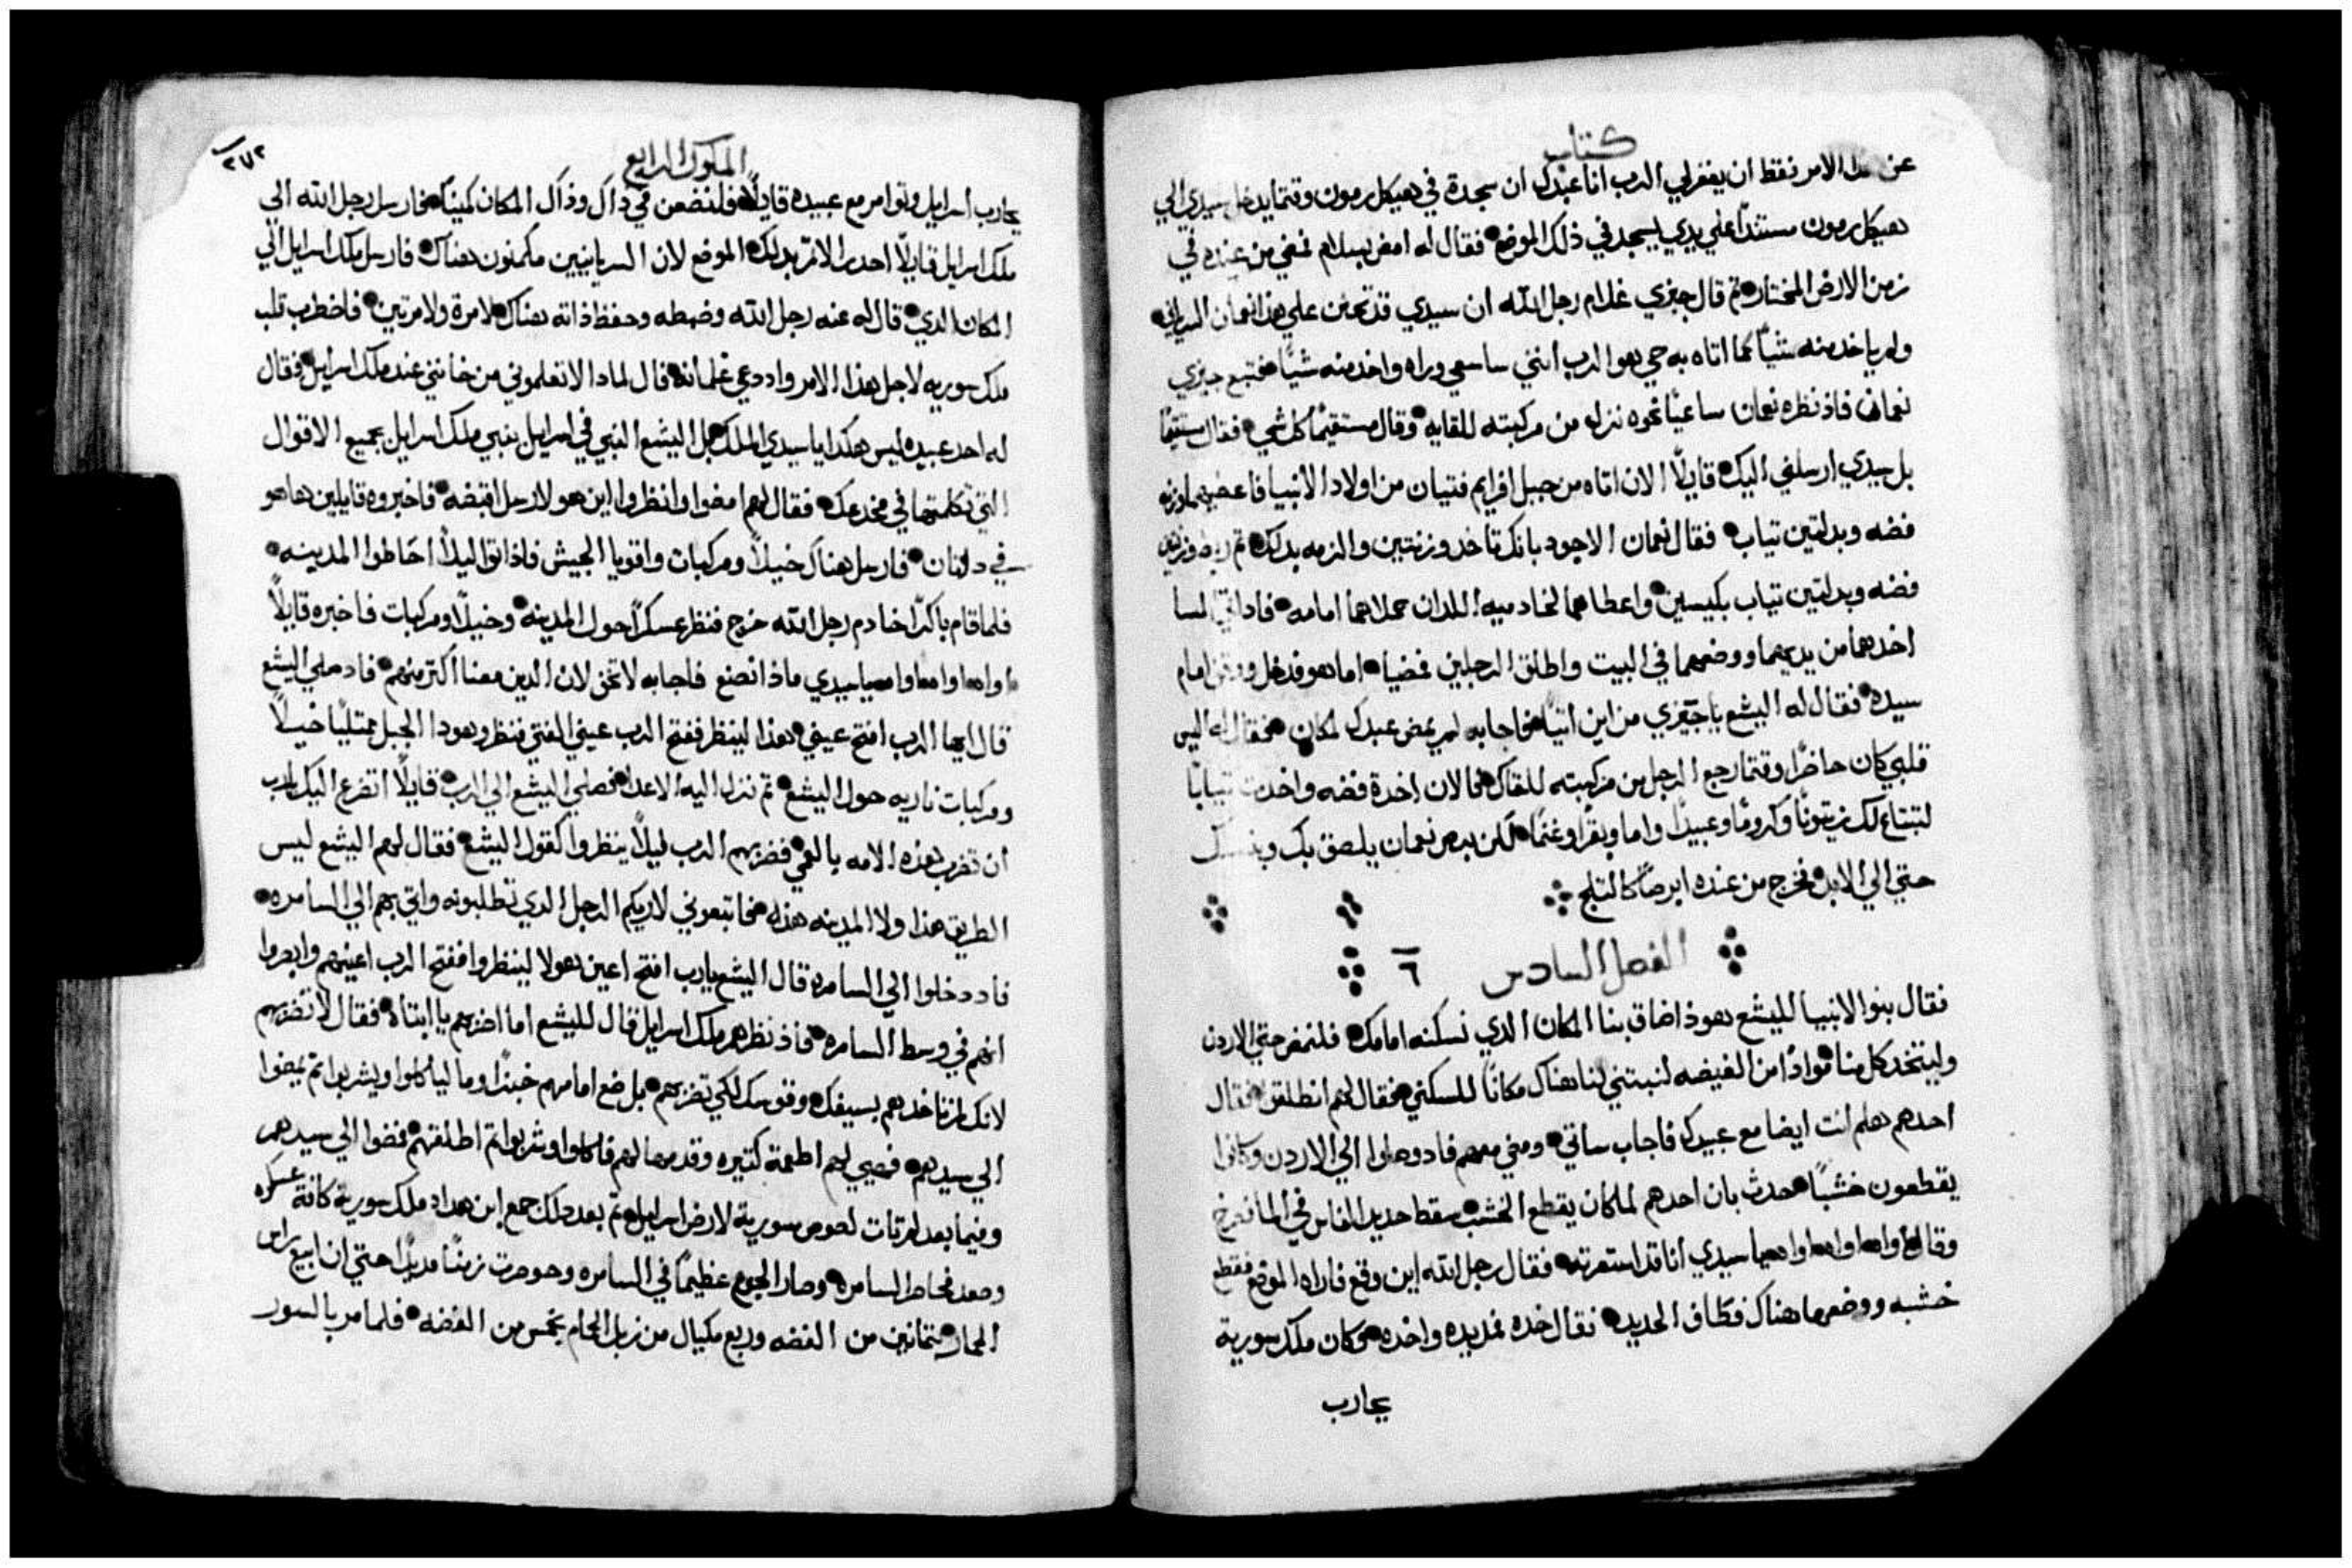 كتاب
عن هذا الامر فقط ان يغفر لي الرب انا عبدك ان سجدة في هيكل رمون وقتما يدخل سيدي الي
هيكل رمون مستندًا علي يدي ليسجد في ذلك الموضع فقال له امض بسلام فمضي من عنده في
زمن الارض المختار ثم قال جيزي غلام رجل الله ان سيدي قد تحنن علي هذا نعمان السرياني
ولم ياخد منه شيًا مما اتاه به حي هو الرب انني ساسعي وراه واخد منه شيًا فتبع جيزي
نعمان فاذ نظره نعمان ساعيًا نحوه نزل من مركبته للقايه وقال مستقيمًا كل شي فقال مستقيمًا
بل سيدي ارسلني اليك قايلًا الان اتاه من جبل افرايم فتيان من اولاد الانبيا فاعطيهما وزنه
فضه وبدلتين تياب فقال نعمان الاجود بانك تاخد وزنتين والزمه بدلك ثم ربط وزنتين
فضه وبدلتين تياب بكيسين واعطاهما لخادميه اللدان حملاهما امامه فاد اتي المسا
اخدهما من يديهما ووضعهما في البيت واطلق الرجلين فمضيا اما هو فدخل ووقف امام
سيده فقال له اليشع يا جيزي من اين اتيت فاجابه لم يمض عبدك لمكان فقال له اليس
قلبي كان حاضرًا وقتما رجع الرجل من مركبته للقاك فالان اخدة فضه واخدت تيابًا
لتبتاع لك زيتونًا وكرومًا وعبيدًا واما وبقرًا وغنمًا لكن برص نعمان يلصق بك وبنسلك
حتي الي الابد فخرج من عنده ابرصًا كالتلج
الفصل السادس ٦
فقال بنوا الانبيا لليشع هوذا ضاق بنا المكان الدي نسكنه امامك فلنمض حتي الاردن
وليتخد كل منا موادًا من الغيضه لنبتني لنا هناك مكانًا للسكني فقال لهم انطلقوا فقال
احدهم هلم انت ايضا مع عبيدك فاجاب ساتي ومضي معهم فاد وصلوا الي الاردن وكانوا
يقطعون خشبًا حدث بان احدهم لما كان يقطع الخشب سقط حديد الفاس في الما فصرخ
وقال اواه اواه اواه يا سيدي انا قد استعرته فقال رجل الله اين وقع فاراه الموضع فقطع
خشبه ووضعها هناك فطاف الحديد فقال خده فمد يده واخده وكان ملك سورية
يحارب
الملوك الرابع
٢٧٢
يحارب اسرايل وتوامر مع عبيده قايلًا فلنضعن في داك وذاك المكان كمينًا فارسل رجل الله الي
ملك اسرايل قايلًا احدر الا تمر بدلك الموضع لان السريانيين مكمنون هناك فارسل ملك اسرايل الي
المكان الدي قال له عنه رجل الله وضبطه وحفظ ذاته هناك لا مرة ولا مرتين فاضطرب قلب
ملك سوريه لاجل هذا الامر واد دعي غلمانه قال لمادا لا تعلموني من خانني عند ملك اسرايل فقال
له احد عبيده ليس هكدا يا سيدي الملك بل اليشع النبي في اسرايل ينبي ملك اسرايل بجميع الاقوال
التي تكلمتها في مخدعك فقال لهم امضوا وانظروا اين هو لارسل اقبضه فاخبروه قايلين ها هو
في دوتان فارسل هناك خيلًا ومركبات واقويا الجيش فاذ اتوا ليلًا احاطوا المدينه
فلما قام باكرًا خادم رجل الله خرج فنظر عسكرًا حول المدينه وخيلًا ومركبات فاخبره قايلًا
اواه اواه اواه يا سيدي ماذا نصنع فاجابه لا تخف لان الدين معنا اكتر منهم فاد صلي اليشع
قال ايها الرب افتح عيني هذا لينظر ففتح الرب عيني الفتي فنظر وهودا الجبل ممتليًا خيلًا
ومركبات ناريه حول اليشع ثم نزل اليه الاعدا فصلي اليشع الي الرب قايلًا اتضرع اليك يا رب
ان تضرب هذه الامه بالعمي فضربهم الرب ليلًا ينظروا كقول اليشع فقال لهم اليشع ليس
الطريق هذا ولا المدينه هذه فاتبعوني لاريكم الرجل الدي تطلبونه واتي بهم الي السامره
فاد دخلوا الي السامره قال اليشع يا رب افتح اعين هولا لينظروا ففتح الرب اعينهم وابصروا
انهم في وسط السامره فاذ نظرهم ملك اسرايل قال لليشع اما اضربهم يا ابتاه فقال لا تضربهم
لانك لم تاخدهم بسيفك وقوسك لكي تضربهم بل ضع امامهم خبزًا وما لياكلوا ويشربوا ثم يمضوا
الي سيدهم فهيي لهم اطعمة كتيره وقدمها لهم فاكلوا وشربوا ثم اطلقهم فمضوا الي سيدهم
وفيما بعد لم تات لصوص سورية لارض اسرايل ثم بعد دلك جمع ابن هداد ملك سورية كافة عسكره
وصعد فحاصر السامره وصار الجوع عظيمًا في السامره وحوصرت زمنًا مديدًا حتي ان ابيع راس
الحمار بتمانين من الفضه وربع مكيال من زبل الحمام بخمس من الفضه فلما مر بالسور